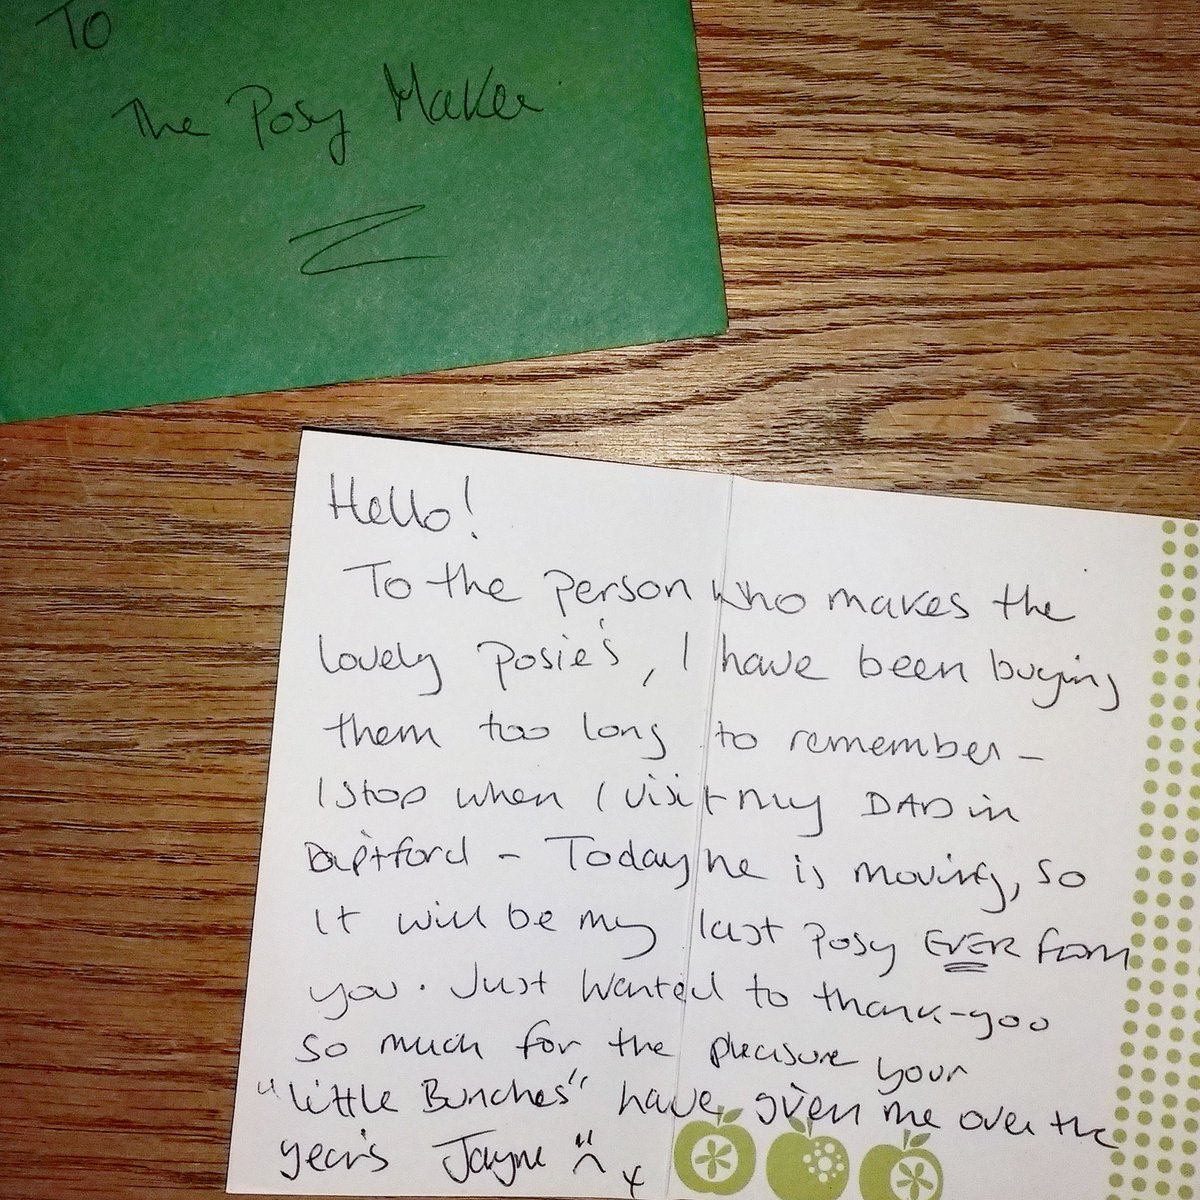 To
The Posy Maker
Hello!
To the person who makes the
lovely Posie's, I have been buying
them too long to remember -
I stop when I visit my DAD in
Deptford - Today he is moving, so
it will be my last posy EVER from
you. Just wanted to thank-you
so much for the pleasure your
"Little Bunches" have given me over the
years Jayne x